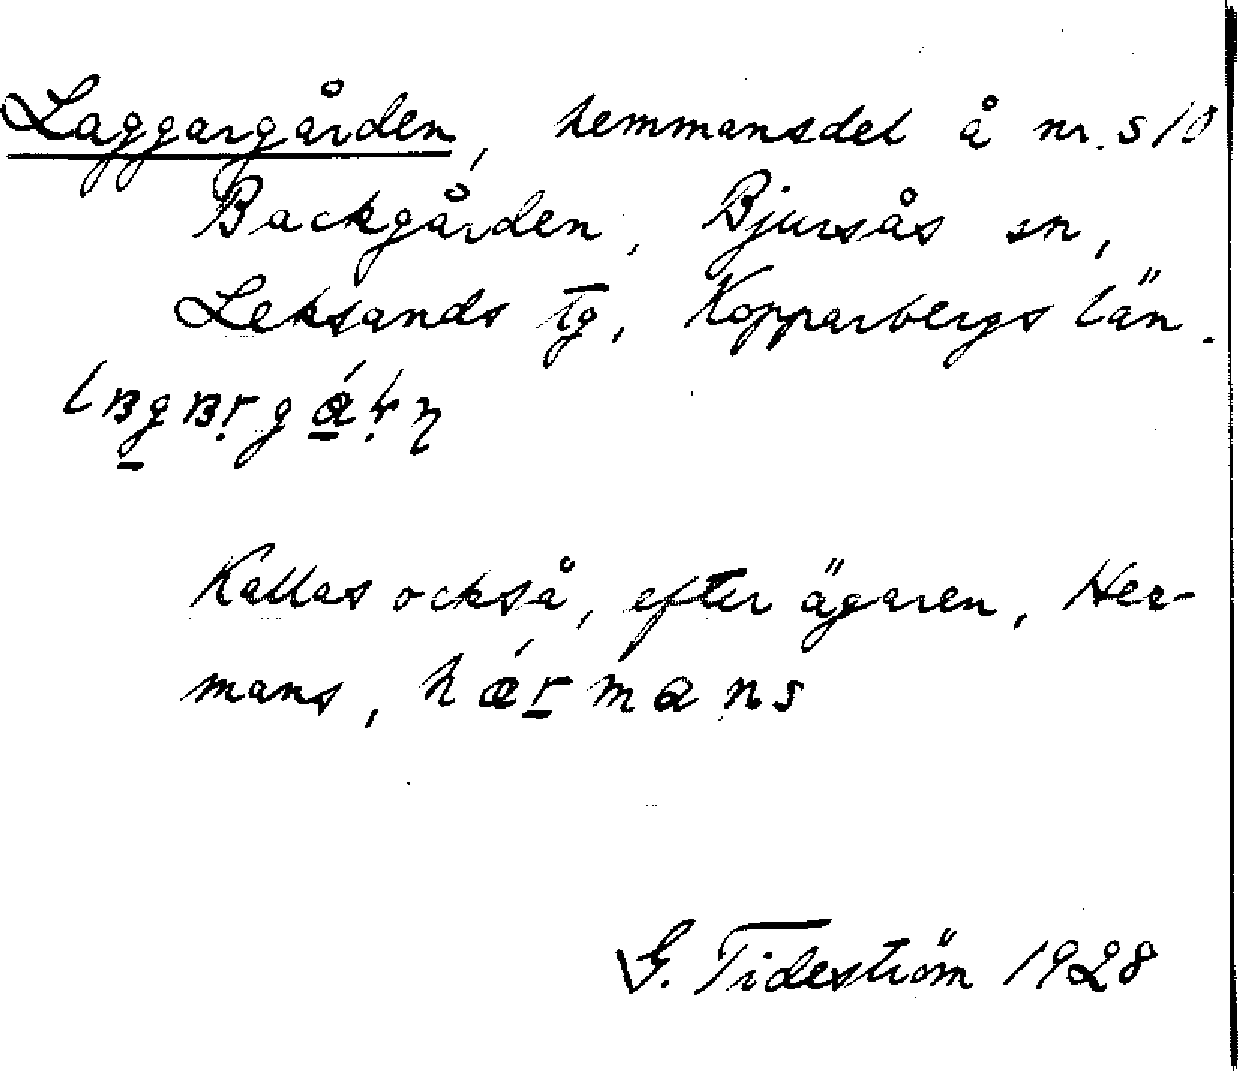 Laggargården, hemmansdel å nr. 5 10
Backgården, Bjursås sn,
Leksands tg, Kopparbergs län.
Kallas också, efter ägaren, Her-
mans, hǽrmans
G. Tideström 1928